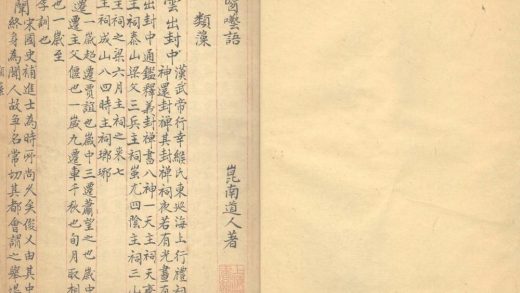 囈語 崑南道人著
類藻
雲出封中 漢武帝行幸緱氏東巡海上行禮祠
神還封禪其封禪祠夜若有光晝有
出封中通鑑釋義封禪書八神一天主祠天齊
主祠泰山梁父三兵主祠蚩尤四陰主祠三山
主祠之罘六月主祠之來七
主祠成山八四時主祠瑯琊
遷 一歲超遷賈誼也歲中三遷蕭望之也歲中
遷主父偃也一歲九遷車千秋也旬月取相
也一歲至
訓也
宋國史補進士為時所尚久矣俊乂由其中
終身為聞人故爭名常切其都會謂之舉場